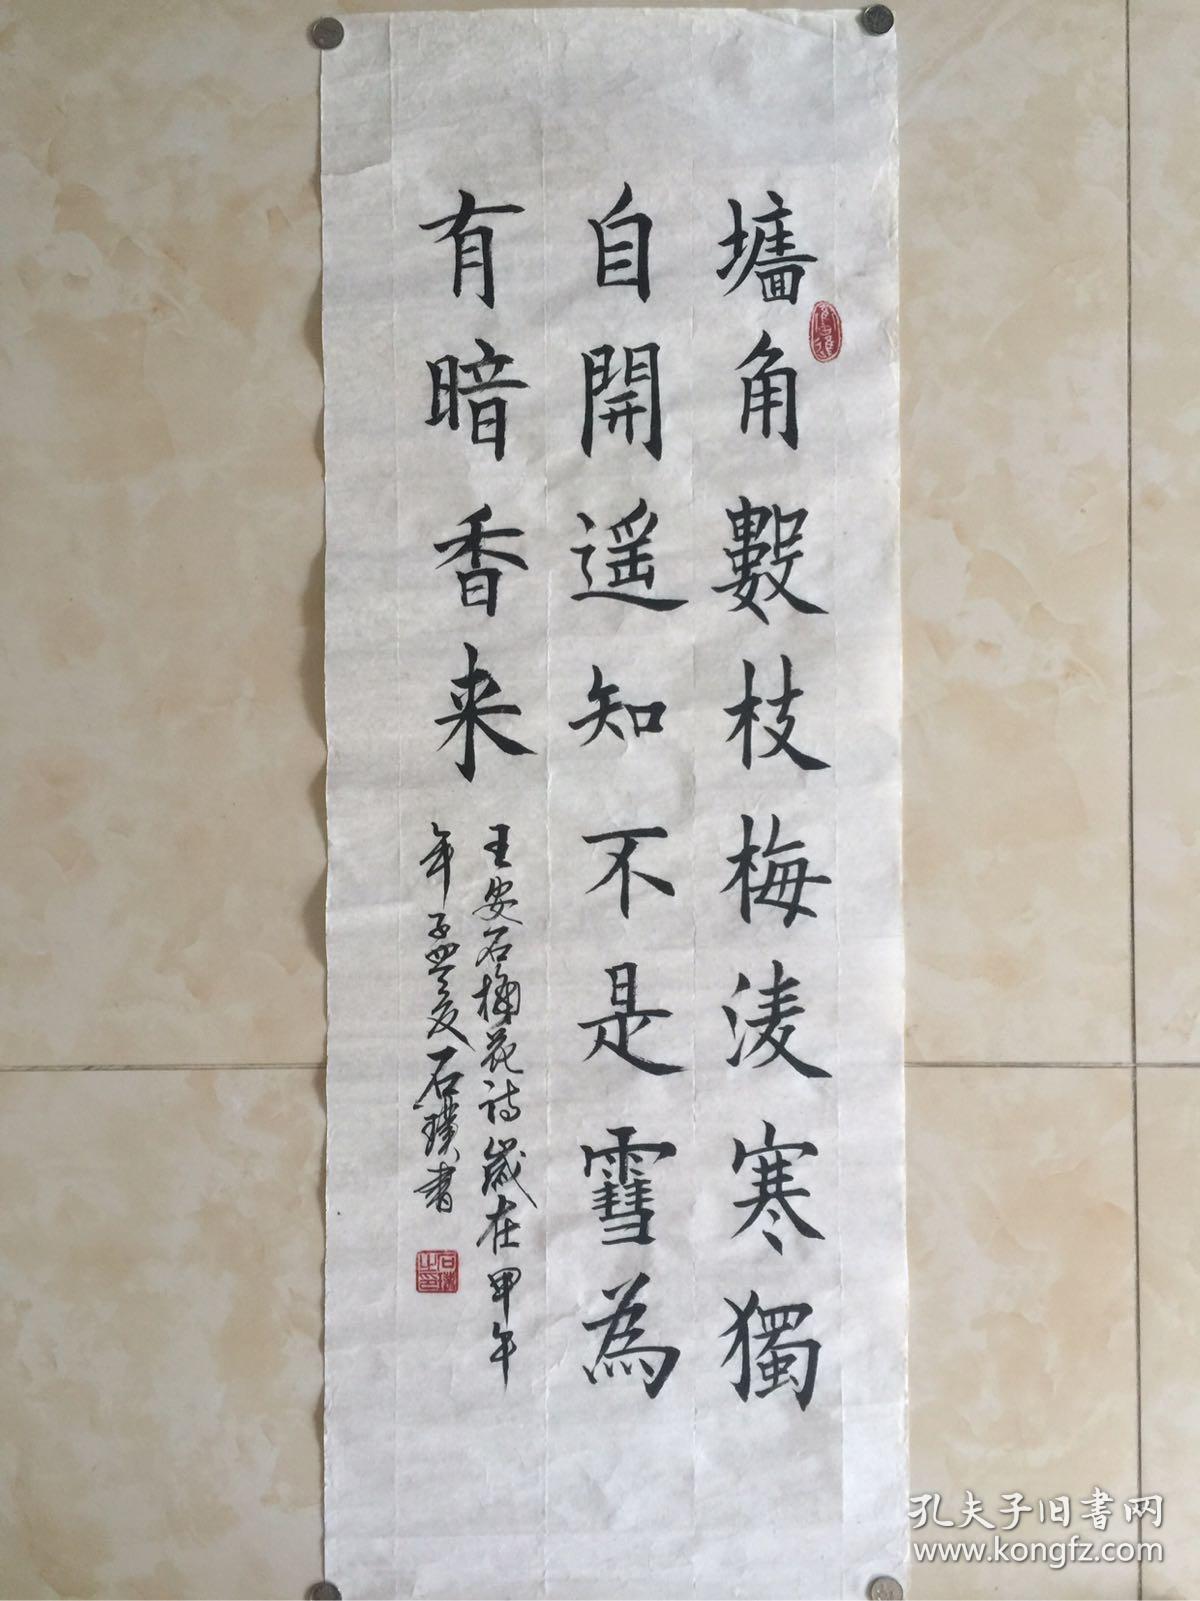 墻角數枝梅淩寒獨
自開遥知不是雪為
有暗香来
王安石梅花詩歲在甲午
年孟夏石璞書
孔夫子旧书网
www.kongfz.com